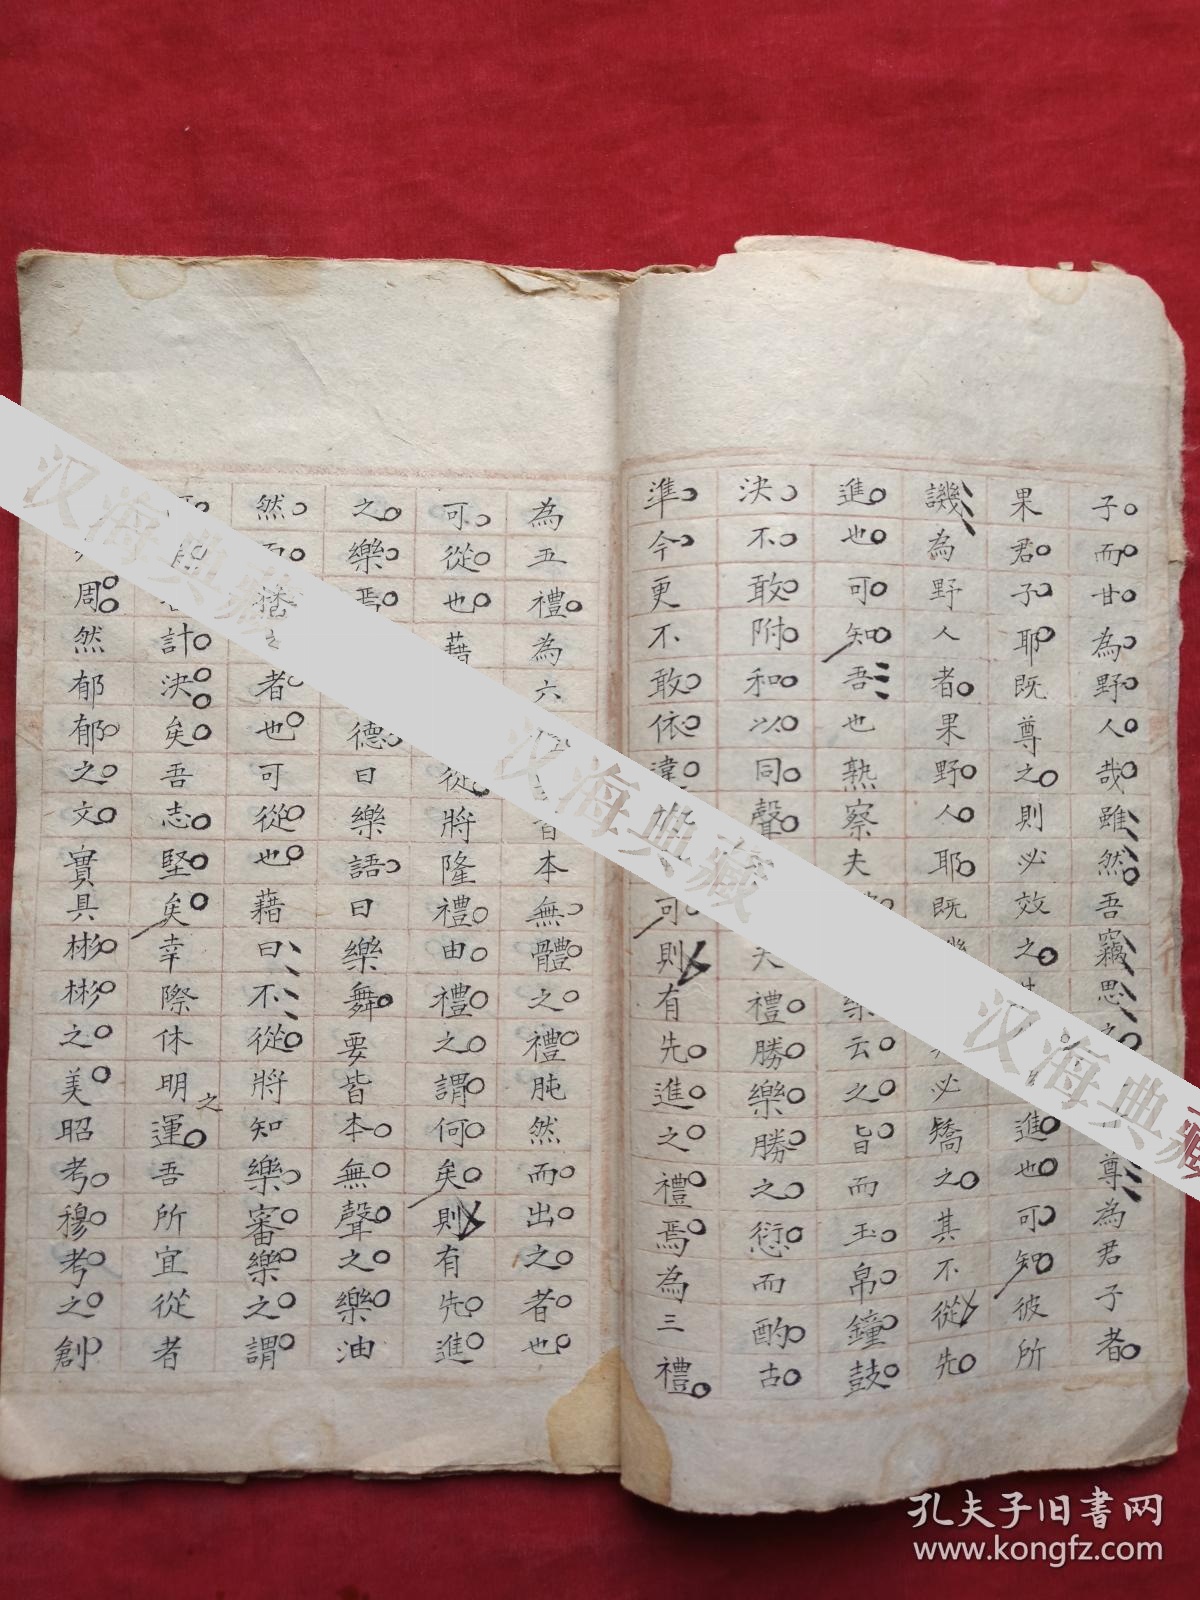 子而甘為野人哉雖然吾竊思之尊為君子者
果君子耶既尊之則必效之進也可知彼所
譏為野人者果野人耶既必矯之其不從先
進也可知吾也熟察夫云之旨而玉帛鐘鼓
決不敢附和以同聲夫禮勝樂勝之愆而酌古
準今更不敢依違可則有先進之禮焉為三禮
為五禮為六本無體之禮肫然而出之者也
可從也藉從將隆禮由禮之謂何矣則有先進
之樂焉德曰樂語曰樂舞要皆本無聲之樂油
然者也可從也藉曰不從將知樂審樂之謂
計決矣吾志堅矣幸際休明之運吾所宜從者
周然郁郁之文實具彬彬之美昭考穆考之創
汉海典藏
汉海典藏
汉海典藏
孔夫子旧书网
www.kongfz.com